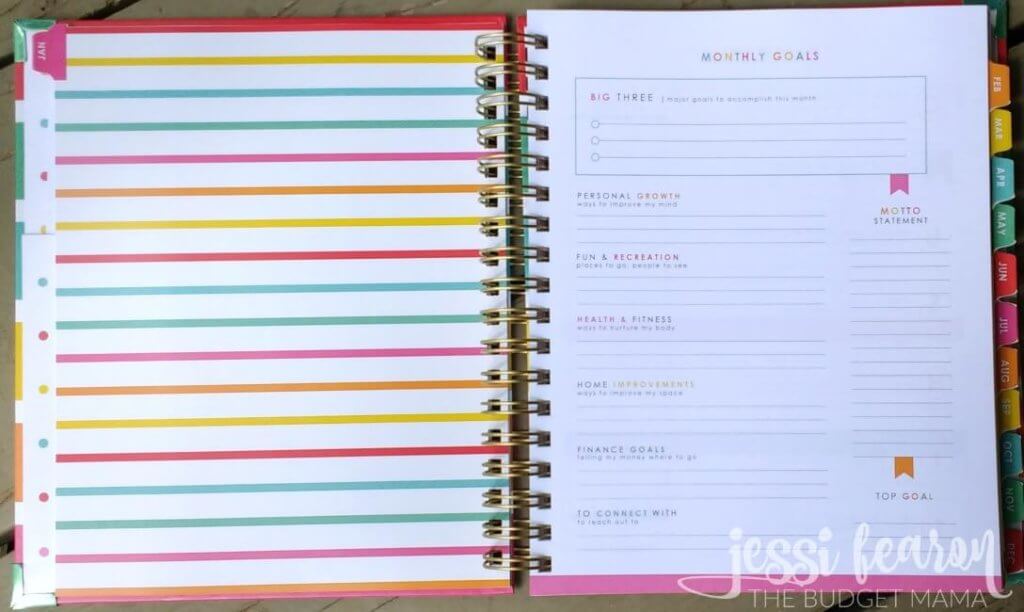 JAN
MONTHLY GOALS
BIG THREE | major goals to accomplish this month
PERSONAL GROWTH
ways to improve my mind
FUN & RECREATION
places to go, people to see
HEALTH & FITNESS
ways to nurture my body
HOME IMPROVEMENTS
ways to improve my space
FINANCE GOALS
telling my money where to go
TO CONNECT WITH
to reach out to
MOTTO
STATEMENT
TOP GOAL
FEB
MAR
APR
MAY
JUN
JUL
AUG
SEP
OCT
NOV
DEC
jessi fearon
THE BUDGET MAMA